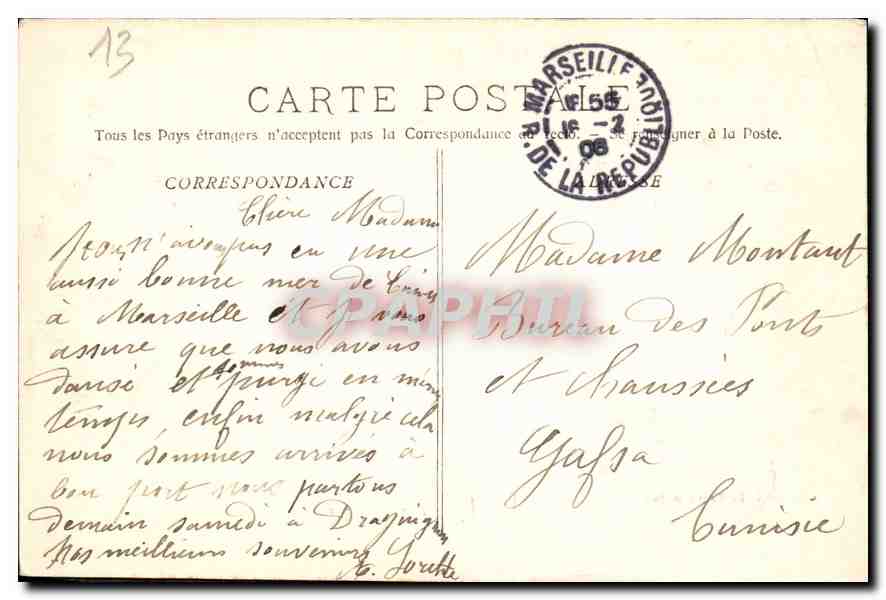 13
CARTE POSTALE
Tous les Pays étrangers n'acceptent pas la Correspondance au recto. - Se renseigner à la Poste.
MARSEILLE R. DE LA RÉPUBLIQUE
55
16 - 2
08
CORRESPONDANCE
ADRESSE
Chère Madame
Nous n'avons pas eu une
aussi bonne mer de
à Marseille et je vous
assure que nous avons
dansé et sommes purgé en même
temps, enfin malgré cela
nous sommes arrivés à
bon port nous partons
demain samedi à Draguignan
Nos meilleurs souvenirs
Madame Montaut
Bureau des Ponts
et Chaussées
Gafsa
Tunisie
CPAPHIL